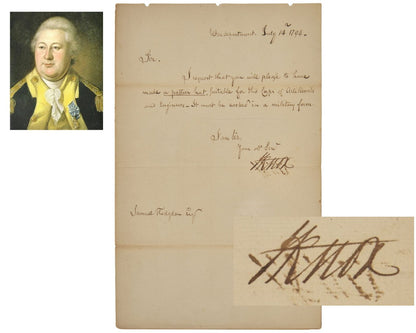 War department July 14th 1794.
Sir.
I request that you will please to have
made a pattern hat, suitable for the Corps of Artillerists
and Engineers. It must be cocked in a military form
I am Sir,
Your Ob Serv
HKnox
Samuel Hodgdon Esqr
HKnox